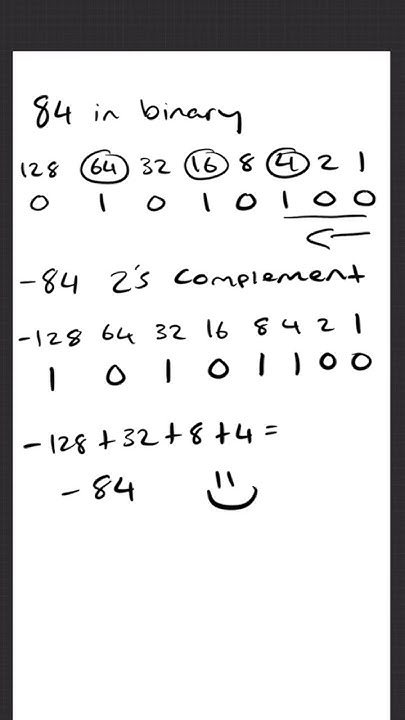 84 in binary
128 64 32 16 8 4 2 1
0 1 0 1 0 1 0 0
-84 2's complement
-128 64 32 16 8 4 2 1
1 0 1 0 1 1 0 0
-128 + 32 + 8 + 4 =
-84